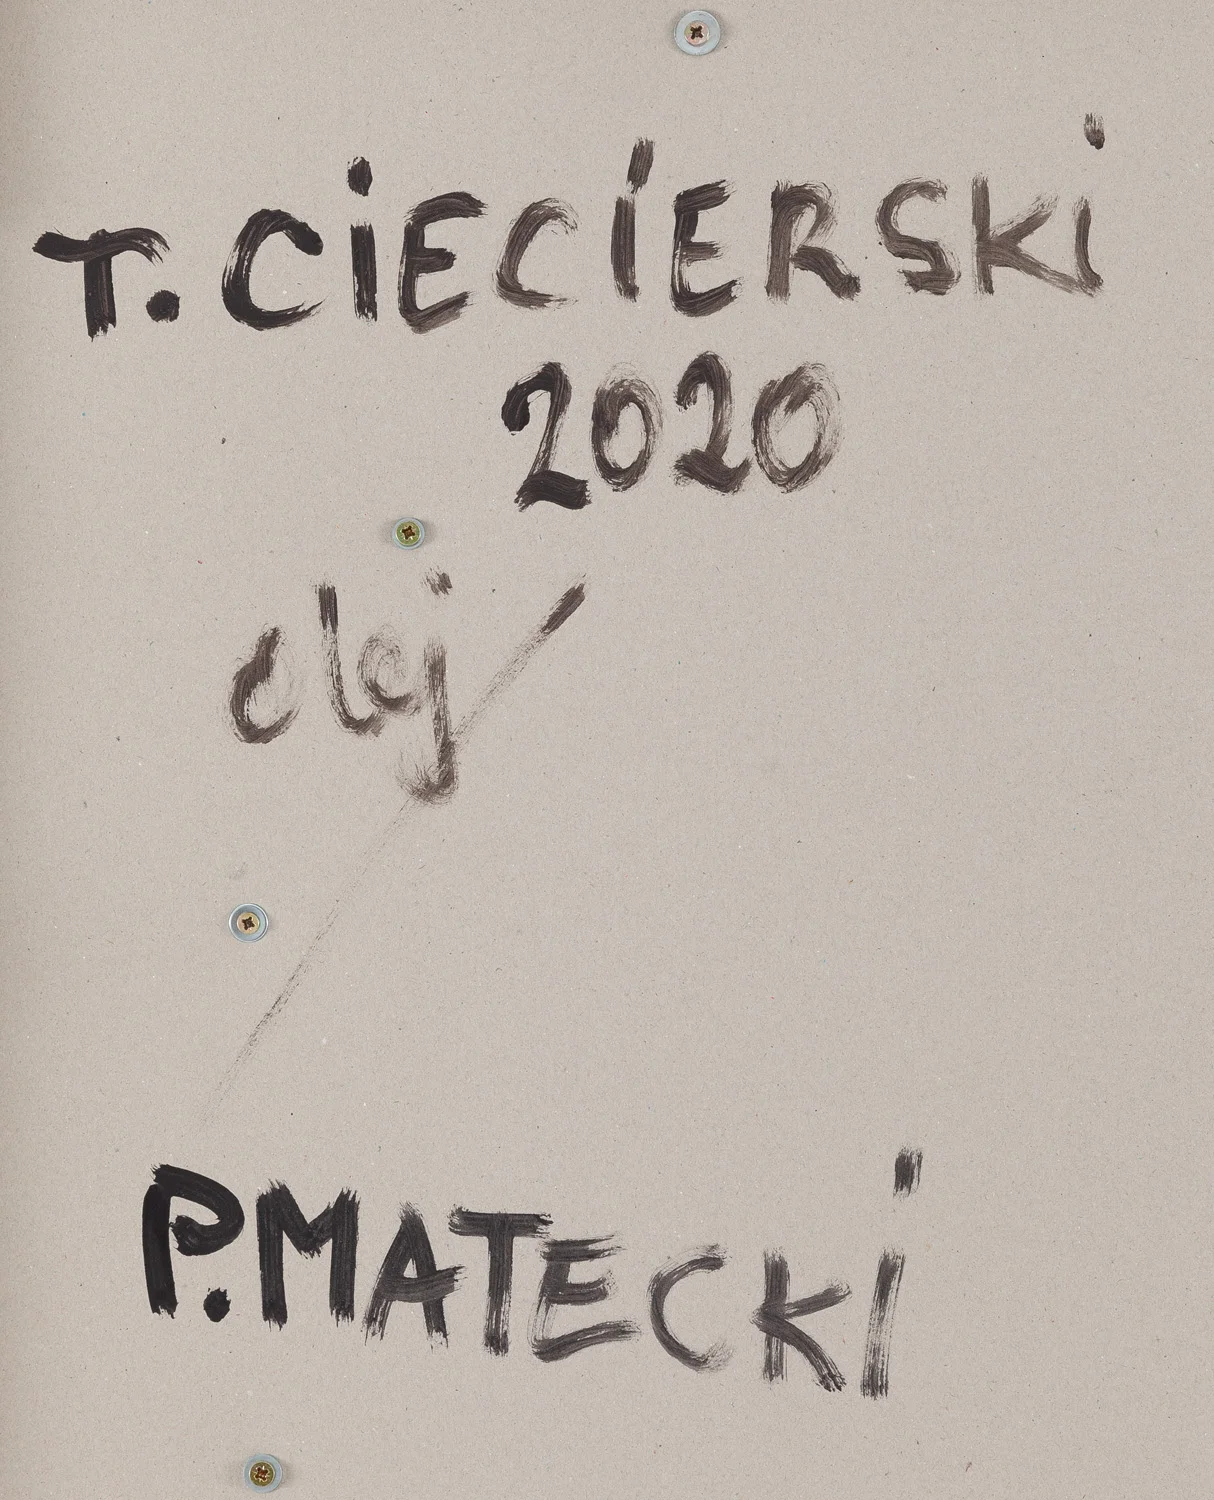 T. CiECiERSKi
2020
olej /
P. MATECKi